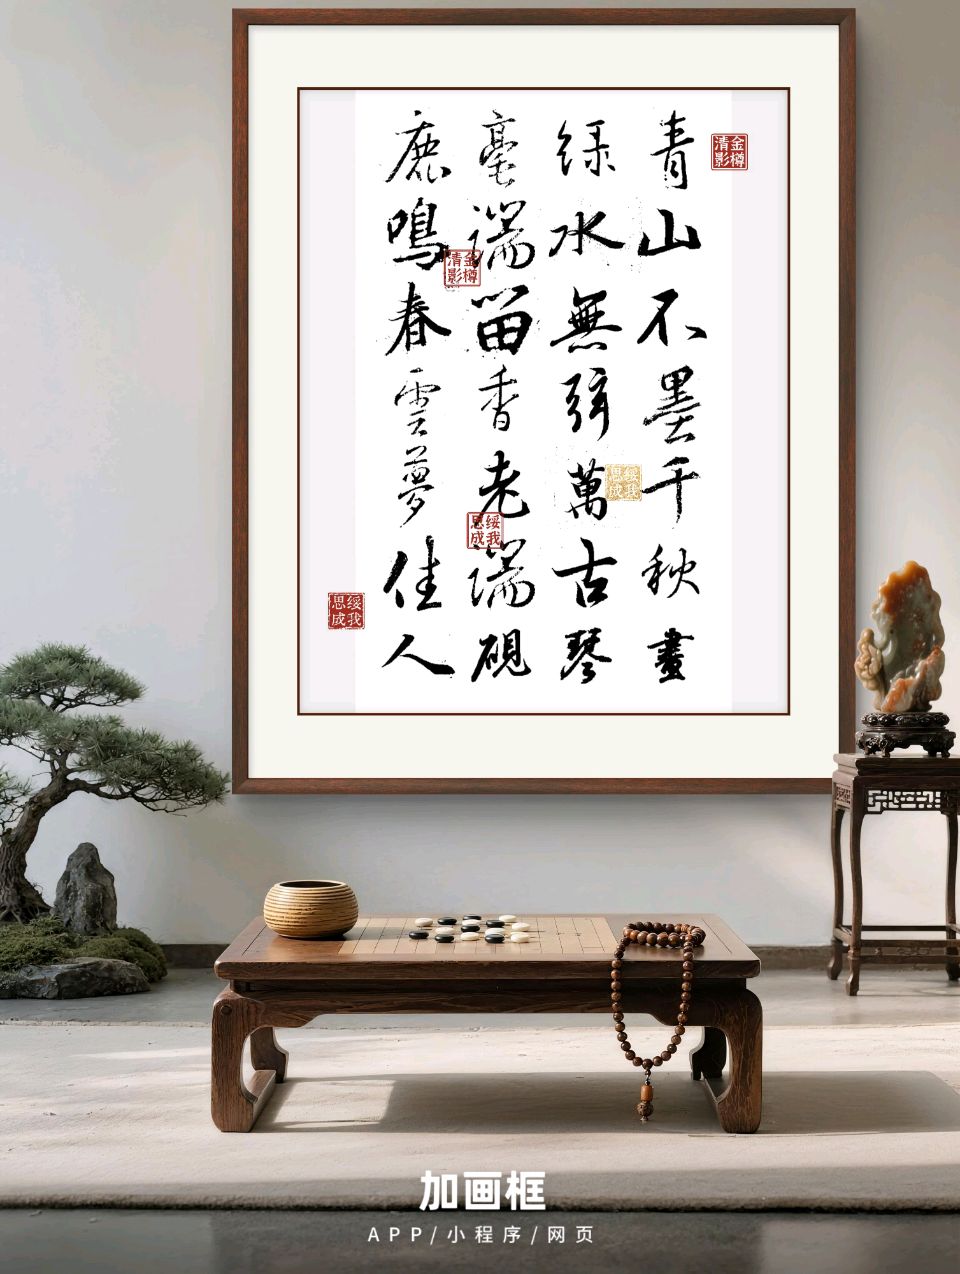 青山不墨千秋畫
绿水無弦萬古琴
毫湍留香老湍硯
鹿鳴春雲夢佳人
金樽清影
金樽清影
綏我思成
綏我思成
綏我思成
加画框
APP/小程序/网页